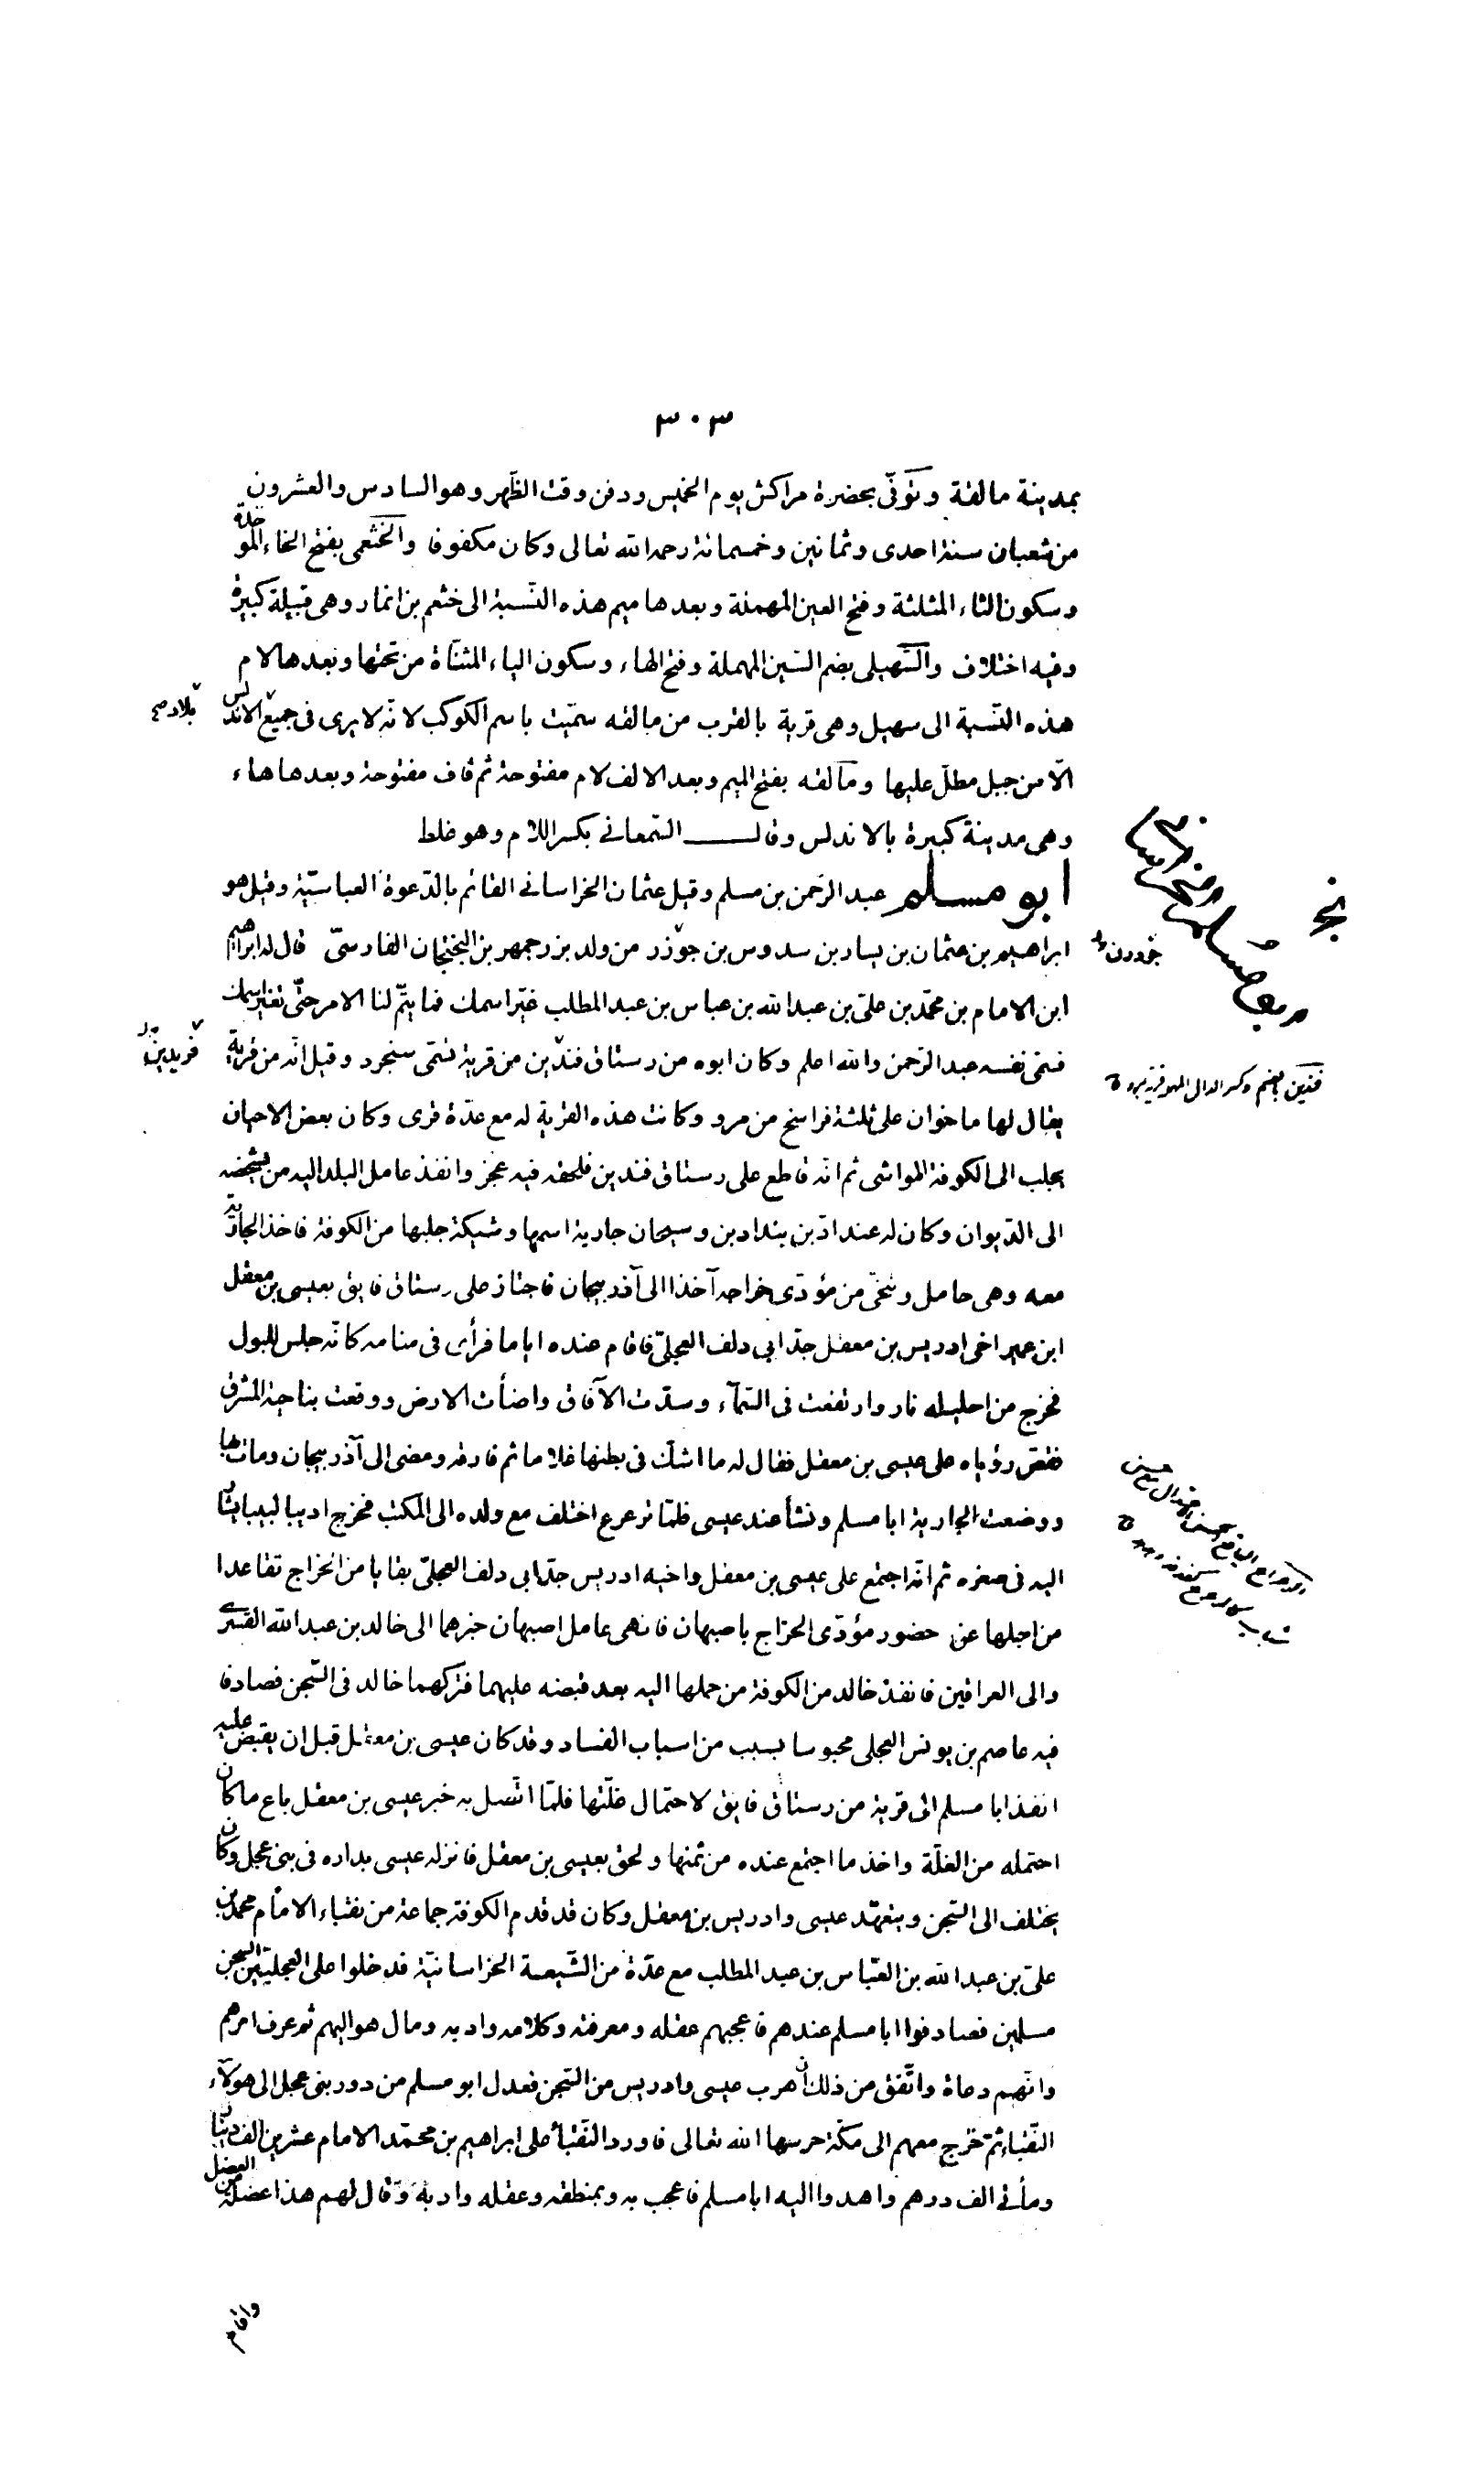 ٣٠٣
بمدينة مالقة وتوفّى بحضرة مراكش يوم الخميس ودفن وقت الظّهر وهو السادس والعشرون
من شعبان سنة احدى وثمانين وخمسمائة رحمه الله تعالى وكان مكفوفا والخثعمى بفتح الخاء الموحدة
وسكون الثاء المثلثة وفتح العين المهملة وبعدها ميم هذه النّسبة الى خثعم بن انمار وهى قبيلة كبيرة
وفيه اختلاف والسّهيلى بضم السّين المهملة وفتح الهاء وسكون الياء المثنّاة من تحتها وبعدها لام
هذه النّسبة الى سهيل وهى قرية بالقرب من مالقه سمّيت باسم الكوكب لانّه لا يرى فى جميع الاندلس
بلاد صح
الّا من جبل مطلّ عليها ومالقه بفتح الميم وبعد الالف لام مفتوحة ثم قاف مفتوحة وبعدها هاء
وهى مدينة كبيرة بالاندلس وقال السّمعانى بكسر اللام وهو غلط
ابو مسلم عبد الرّحمن بن مسلم وقيل عثمان الخراسانى القائم بالدّعوة العباسيّة وقيل هو
ابراهيم بن عثمان بن يسار بن سدوس بن جوزدر من ولد بزرجمهر بن البختجان الفارسىّ قال له ابراهيم
ابن الامام بن محمّد بن علىّ بن عبد الله بن عباس بن عبد المطلب غيّر اسمك فما يتمّ لنا الامر حتّى تغيّر اسمك
فسمّى نفسه عبد الرّحمن والله اعلم وكان ابوه من رستاق فندين من قرية تسمّى سنجرد وقيل انّه من قرية
فريدين
فندين بالضم وكسر الدال المهملة قرية بمرو
يقال لها ماخوان على ثلثة فراسخ من مرو وكانت هذه القرية له مع عدّة قرى وكان بعض الاحيان
يجلب الى الكوفة المواشى ثم انّه قاطع على رستاق فندين فلحقه فيه عجز وانفذ عامل البلد اليه من يشخصه
الى الدّيوان وكان له عند اذين بنداد بن وسيحان جارية اسمها وشيكة جلبها من الكوفة فاخذ الجارية
معه وهى حامل وتنحّى من مؤدّى خراجه آخذا الى آذربيجان فاجتاز على رستاق فايق بعيسى بن معقل
ابن عمير اخى ادريس بن معقل جدّ ابى دلف العجلىّ فاقام عنده اياما فرأى فى منامه كانّه جلس للبول
فخرج من احليله نار وارتفعت فى السّمآء وسدّت الآفاق واضأت الارض ووقعت بناحية المشرق
فقصّ رؤياه على عيسى بن معقل فقال له ما اشكّ فى بطنها غلاما ثم فارقه ومضى الى آذربيجان ومات بها
ووضعت الجارية ابا مسلم ونشأ عند عيسى فلمّا ترعرع اختلف مع ولده الى المكتب فخرج اديبا لبيبا يشار
اليه فى صغره ثم انّه اجتمع على عيسى بن معقل واخيه ادريس جدّ ابى دلف العجلىّ بقايا من الخراج تقاعدا
من اجلها عن حضور مؤدّى الخراج باصبهان فانهى عامل اصبهان خبرهما الى خالد بن عبد الله القسرى
والى العراقين فانفذ خالد من الكوفة من حملها اليه بعد قبضه عليهما فتركهما خالد فى السّجن فصادفا
فيه عاصم بن يونس العجلى محبوسا بسبب من اسباب الفساد وقد كان عيسى بن معقل قبل ان يقبض عليه
انفذ ابا مسلم الى قرية من رستاق فايق لاحتمال غلّتها فلمّا اتّصل به خبر عيسى بن معقل باع ما كان
احتمله من الغلّة واخذ ما اجتمع عنده من ثمنها ولحق بعيسى بن معقل فانزله عيسى بداره فى بنى عجل وكان
يختلف الى السّجن ويتعهّد عيسى وادريس بن معقل وكان قد قدم الكوفة جماعة من نقباء الامام محمد بن
علىّ بن عبد الله بن العبّاس بن عبد المطلب مع عدّة من الشّيعة الخراسانيّة فدخلوا على العجليّين السجن
مسلمين فصادفوا ابا مسلم عندهم فاعجبهم عقله ومعرفته وكلامه وادبه ومال هو اليهم ثم عرف امرهم
وانّهم دعاة واتّفق من ذلك ان هرب عيسى وادريس من السّجن فعدل ابو مسلم من دور بنى عجل الى هولآء
النّقباء ثمّ خرج معهم الى مكّة حرسها الله تعالى فاورد النّقبأ على ابراهيم بن محمّد الامام عشرين الف دينار
ومأتى الف درهم واهدوا اليه ابا مسلم فاعجب به وبمنطقه وعقله وادبه وقال لهم هذا عضلة من العضل
واقام